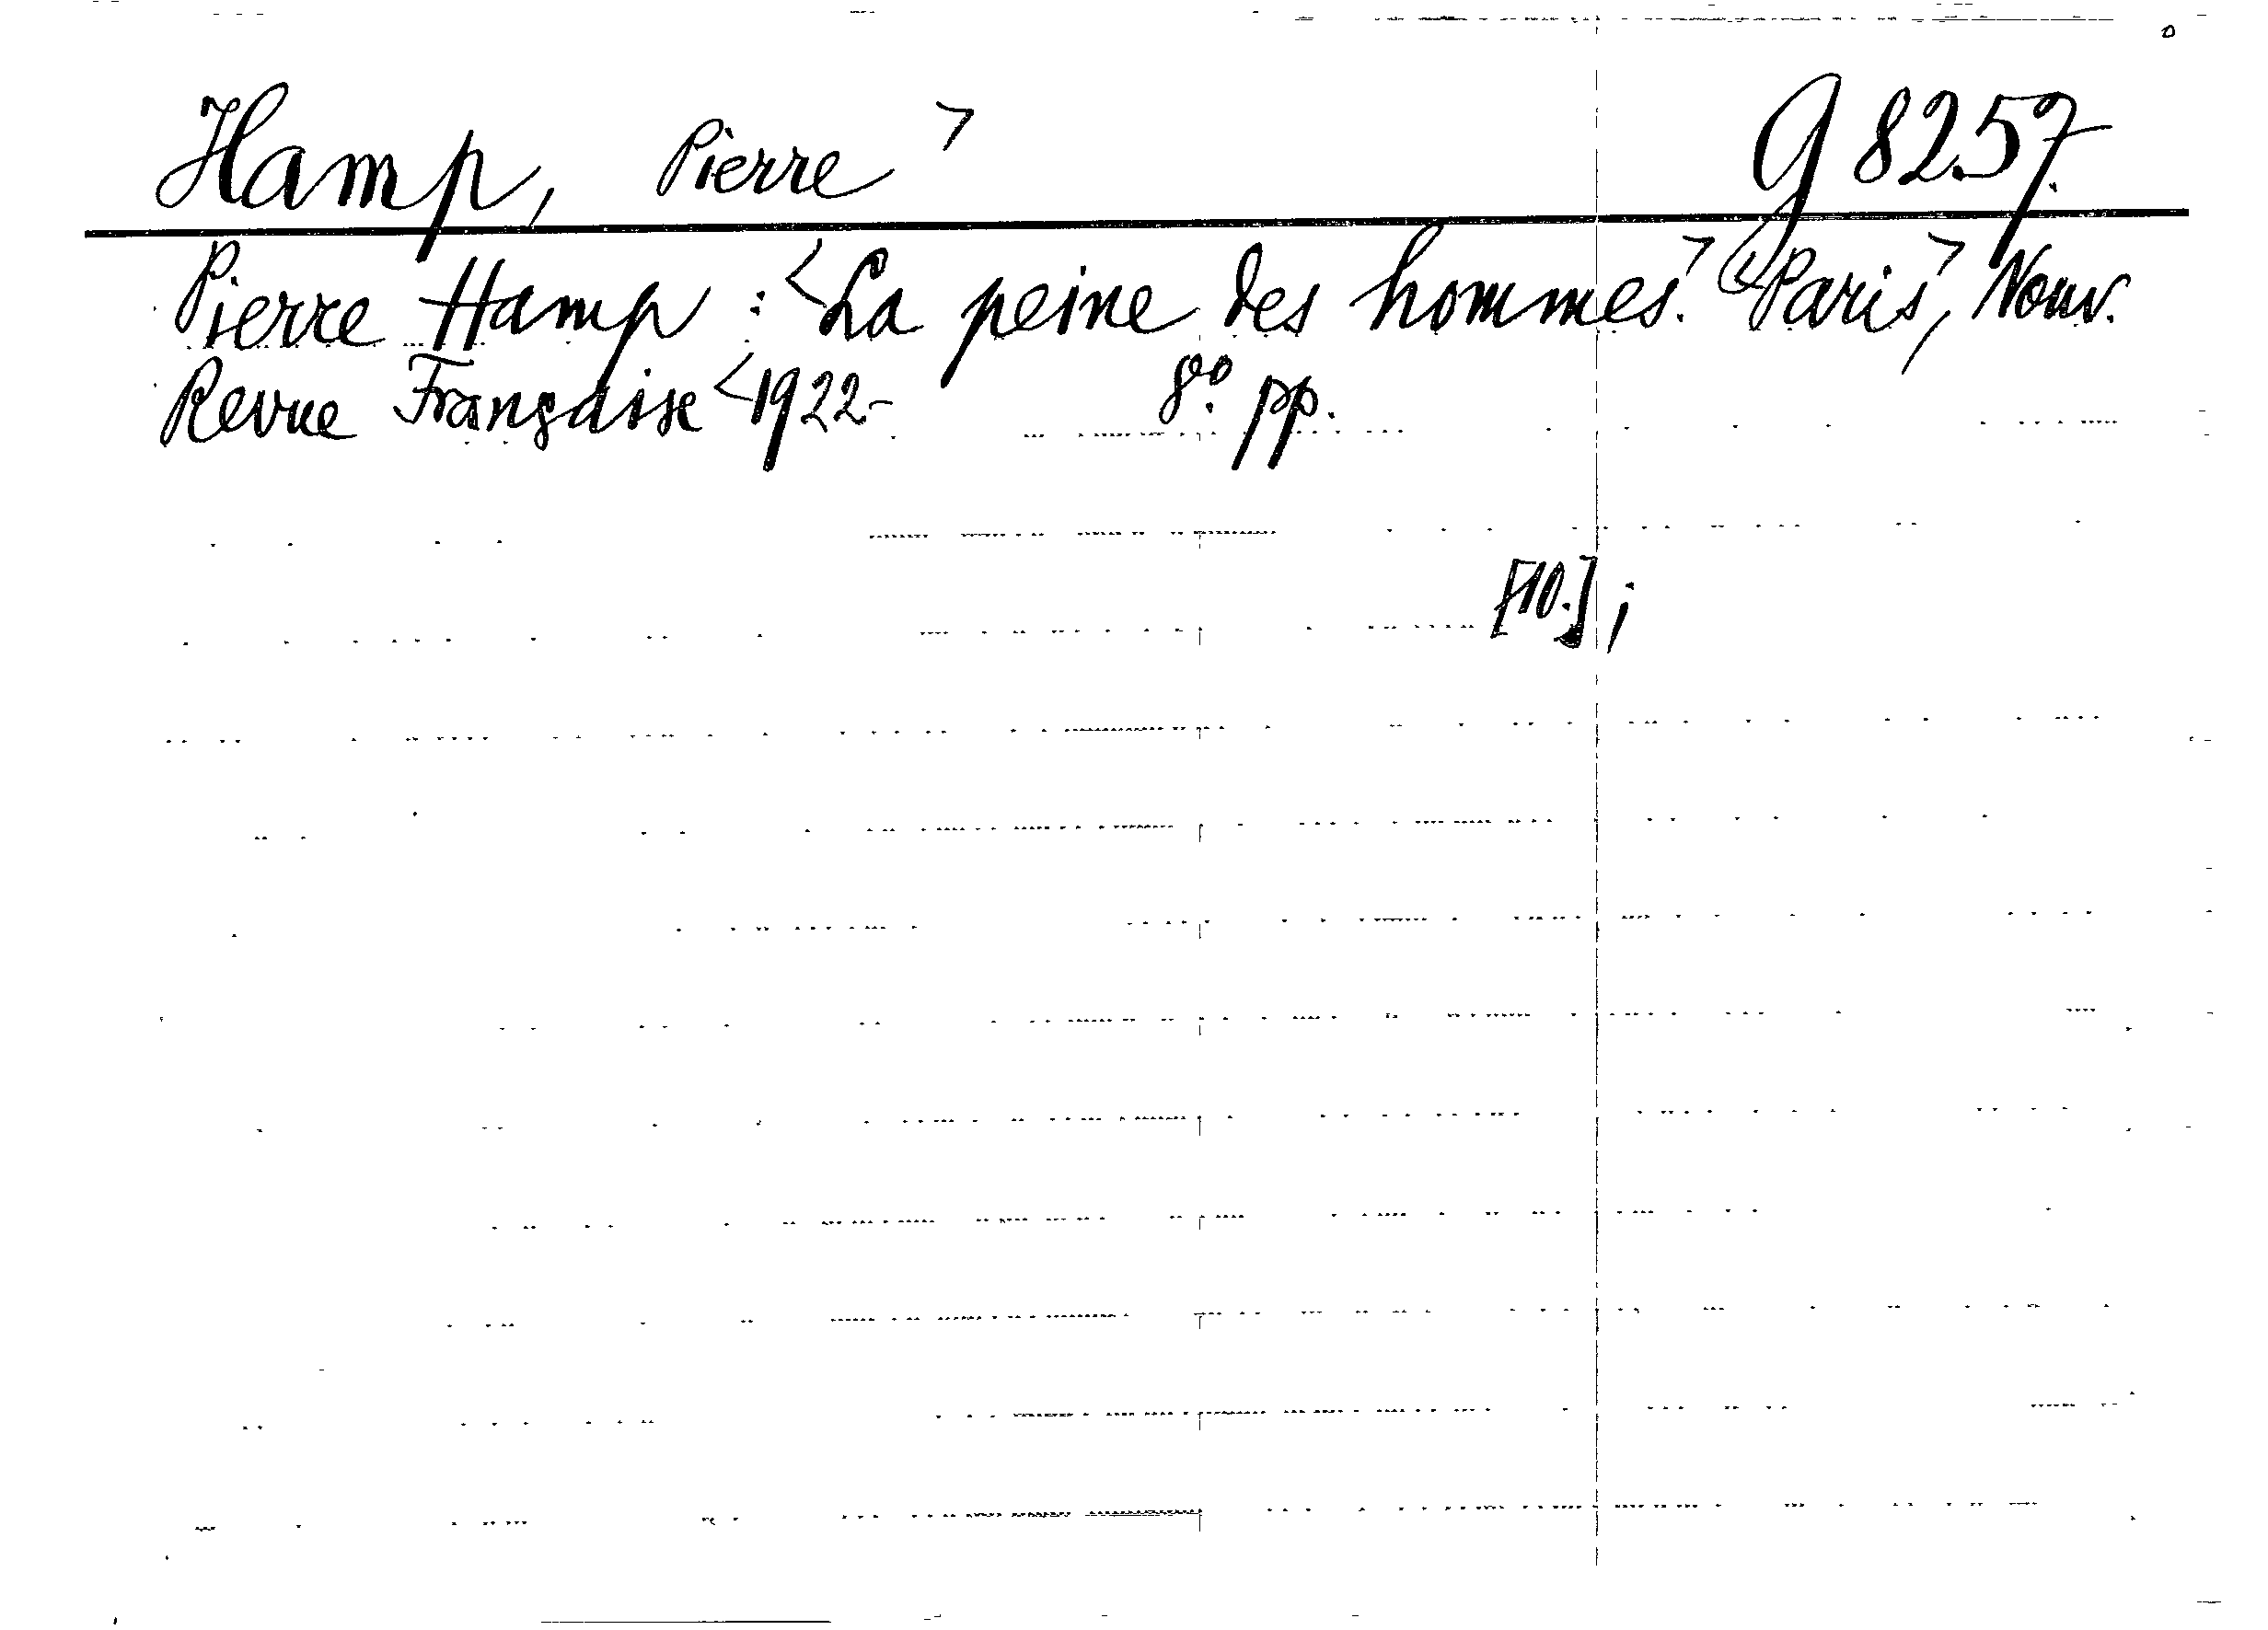 Hamp, Pierre > G 8257.
Pierre Hamp : <La peine des hommes.> <Paris>, Nouv.
Revue Française <1922- 8.° pp.
[10.] ;